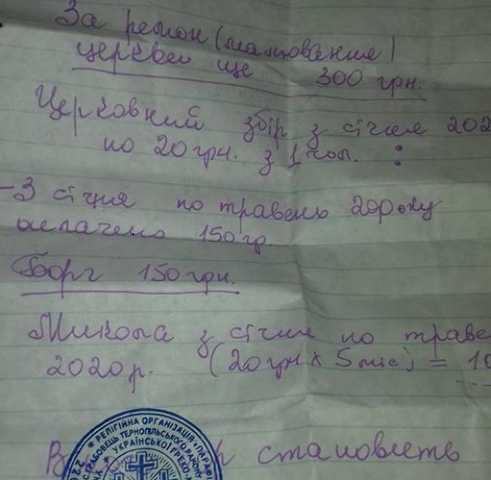 За ремонт (малювання)
церкви ще 300 грн.
Церковний збір з січня 202
по 20 грн. з 1 чол. :
- З січня по травень 20 року
оплачено 150 гр.
Борг 150 грн.
Микола з січня по траве
2020 р. (20 грн x 5 міс) = 10
становлять
РЕЛІГІЙНА ОРГАНІЗАЦІЯ "ПАРАФІ
ТЕРНОПІЛЬСЬКОГО РАЙОНУ
УКРАЇНСЬКОЇ ГРЕКО-